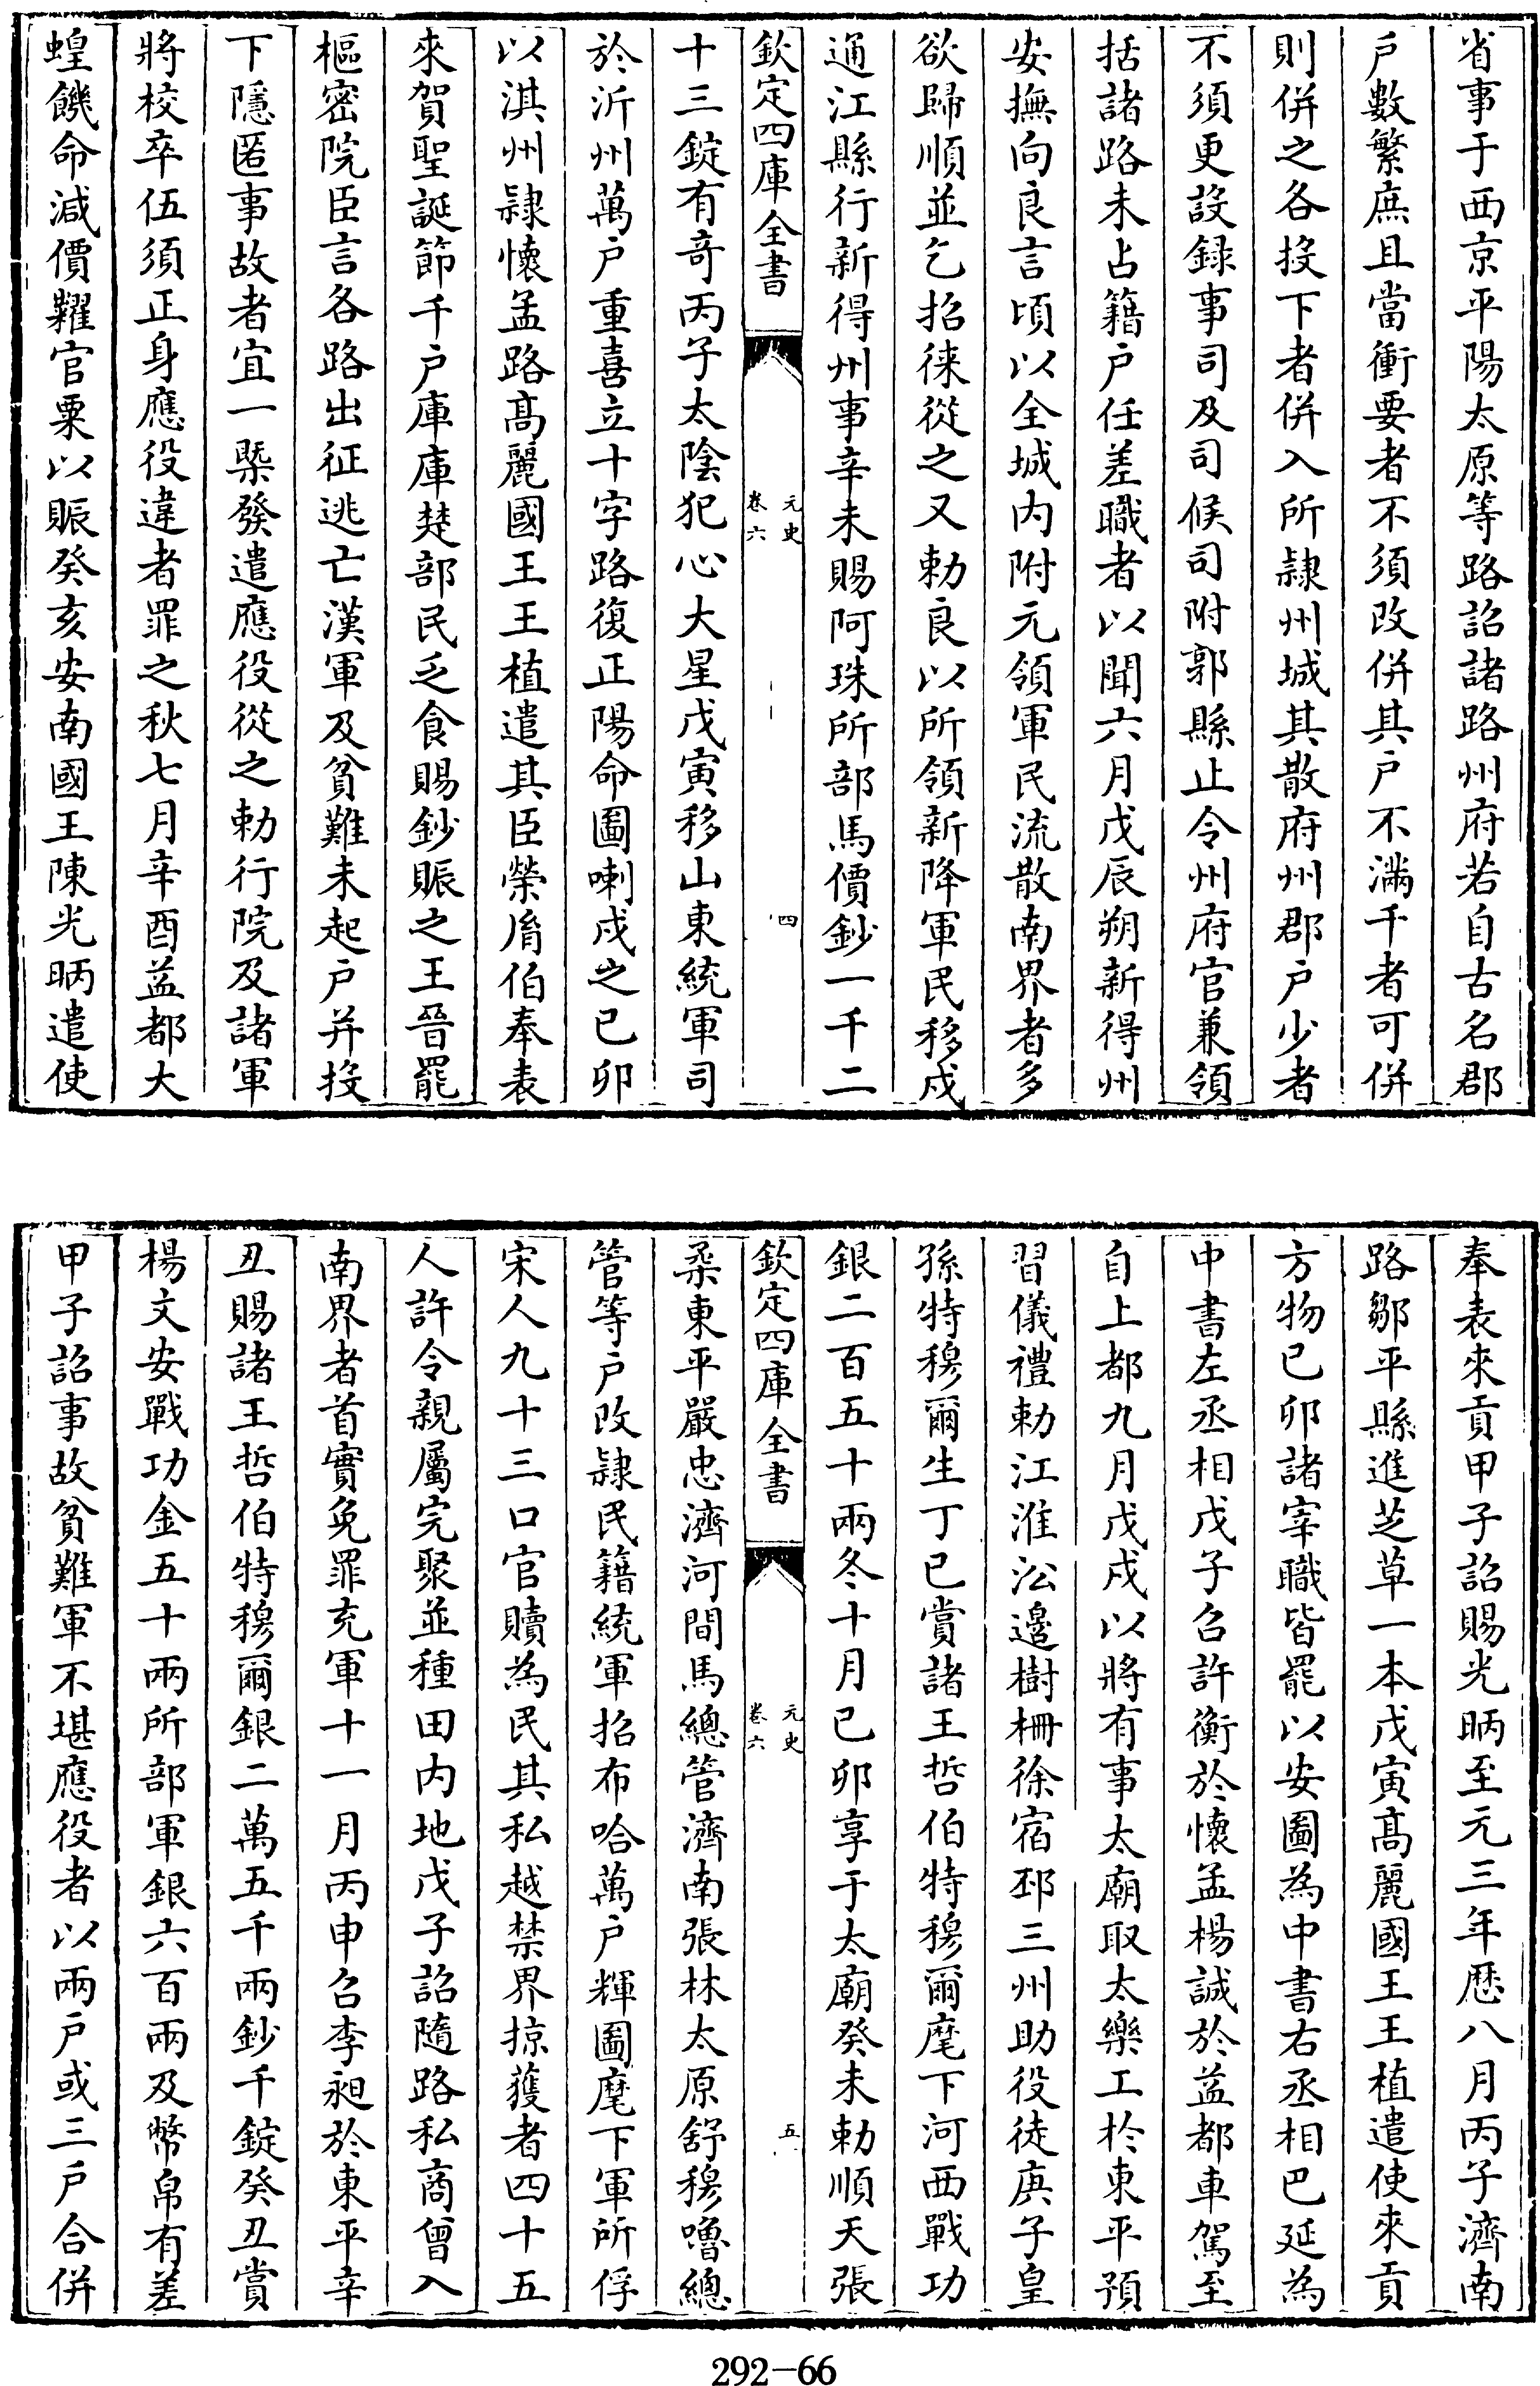 省事于西京平陽太原等路詔諸路州府若自古名郡
戶數繁庶且當衝要者不須改併其戶不滿千者可併
則併之各投下者併入所隷州城其散府州郡戶少者
不須更設録事司及司候司附郭縣止令州府官兼領
括諸路未占籍戶任差職者以聞六月戊辰朔新得州
安撫向良言頃以全城内附元領軍民流散南界者多
欲歸順並乞招徠從之又勅良以所領新降軍民移戍
通江縣行新得州事辛未賜阿珠所部馬價鈔一千二
欽定四庫全書
元史
卷六
四
十三錠有奇丙子太陰犯心大星戊寅移山東統軍司
於沂州萬戶重喜立十字路復正陽命圖喇戍之已卯
以淇州隷懷孟路髙麗國王王植遣其臣榮胤伯奉表
來賀聖誕節千戶庫庫楚部民乏食賜鈔賑之王晉罷
樞密院臣言各路出征逃亡漢軍及貧難未起戶并投
下隱匿事故者宜一槩發遣應役從之勅行院及諸軍
將校卒伍須正身應役違者罪之秋七月辛酉益都大
蝗饑命減價糶官粟以賑癸亥安南國王陳光昞遣使
奉表來貢甲子詔賜光昞至元三年厯八月丙子濟南
路鄒平縣進芝草一本戊寅髙麗國王王植遣使來貢
方物已卯諸宰職皆罷以安圖為中書右丞相巴延為
中書左丞相戊子召許衡於懷孟楊誠於益都車駕至
自上都九月戊戌以將有事太廟取太樂工於東平預
習儀禮勅江淮㳂邊樹柵徐宿邳三州助役徒庚子皇
孫特穆爾生丁巳賞諸王哲伯特穆爾麾下河西戰功
銀二百五十兩冬十月已卯享于太廟癸未勅順天張
欽定四庫全書
元史
卷六
五
柔東平嚴忠濟河間馬總管濟南張林太原舒穆嚕總
管等戶改隷民籍統軍招布哈萬戶輝圖麾下軍所俘
宋人九十三口官贖為民其私越禁界掠獲者四十五
人許令親屬完聚並種田内地戊子詔隨路私商曾入
南界者首實免罪充軍十一月丙申召李昶於東平辛
丑賜諸王哲伯特穆爾銀二萬五千兩鈔千錠癸丑賞
楊文安戰功金五十兩所部軍銀六百兩及幣帛有差
甲子詔事故貧難軍不堪應役者以兩戶或三戶合併
292-66